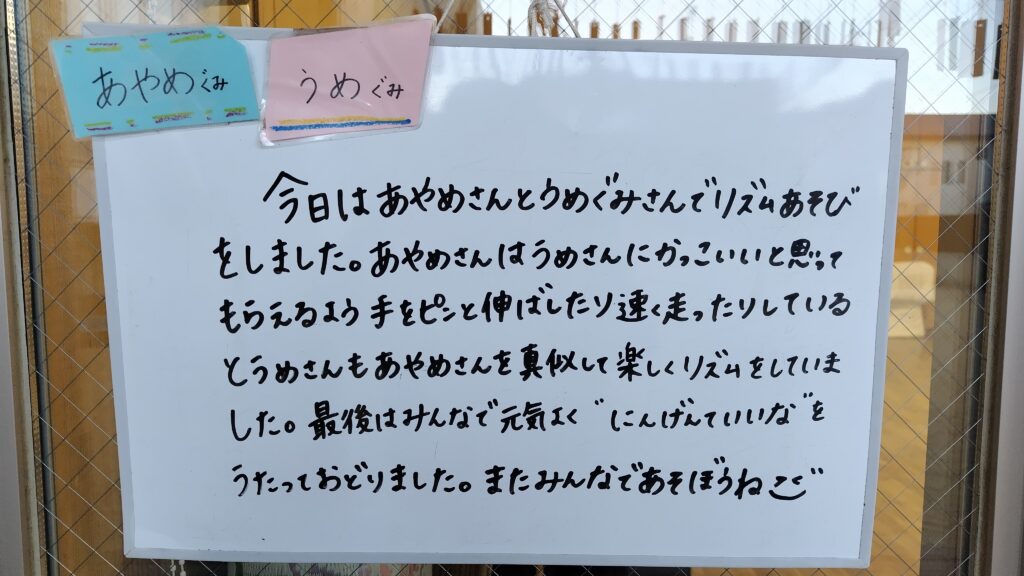 あやめぐみ
うめぐみ
今日はあやめさんとうめぐみさんでリズムあそび
をしました。あやめさんはうめさんにかっこいいと思って
もらえるよう手をピンと伸ばしたり速く走ったりしている
とうめさんもあやめさんを真似して楽しくリズムをしていま
した。最後はみんなで元気よく〝にんげんていいな〟を
うたっておどりました。またみんなであそぼうね